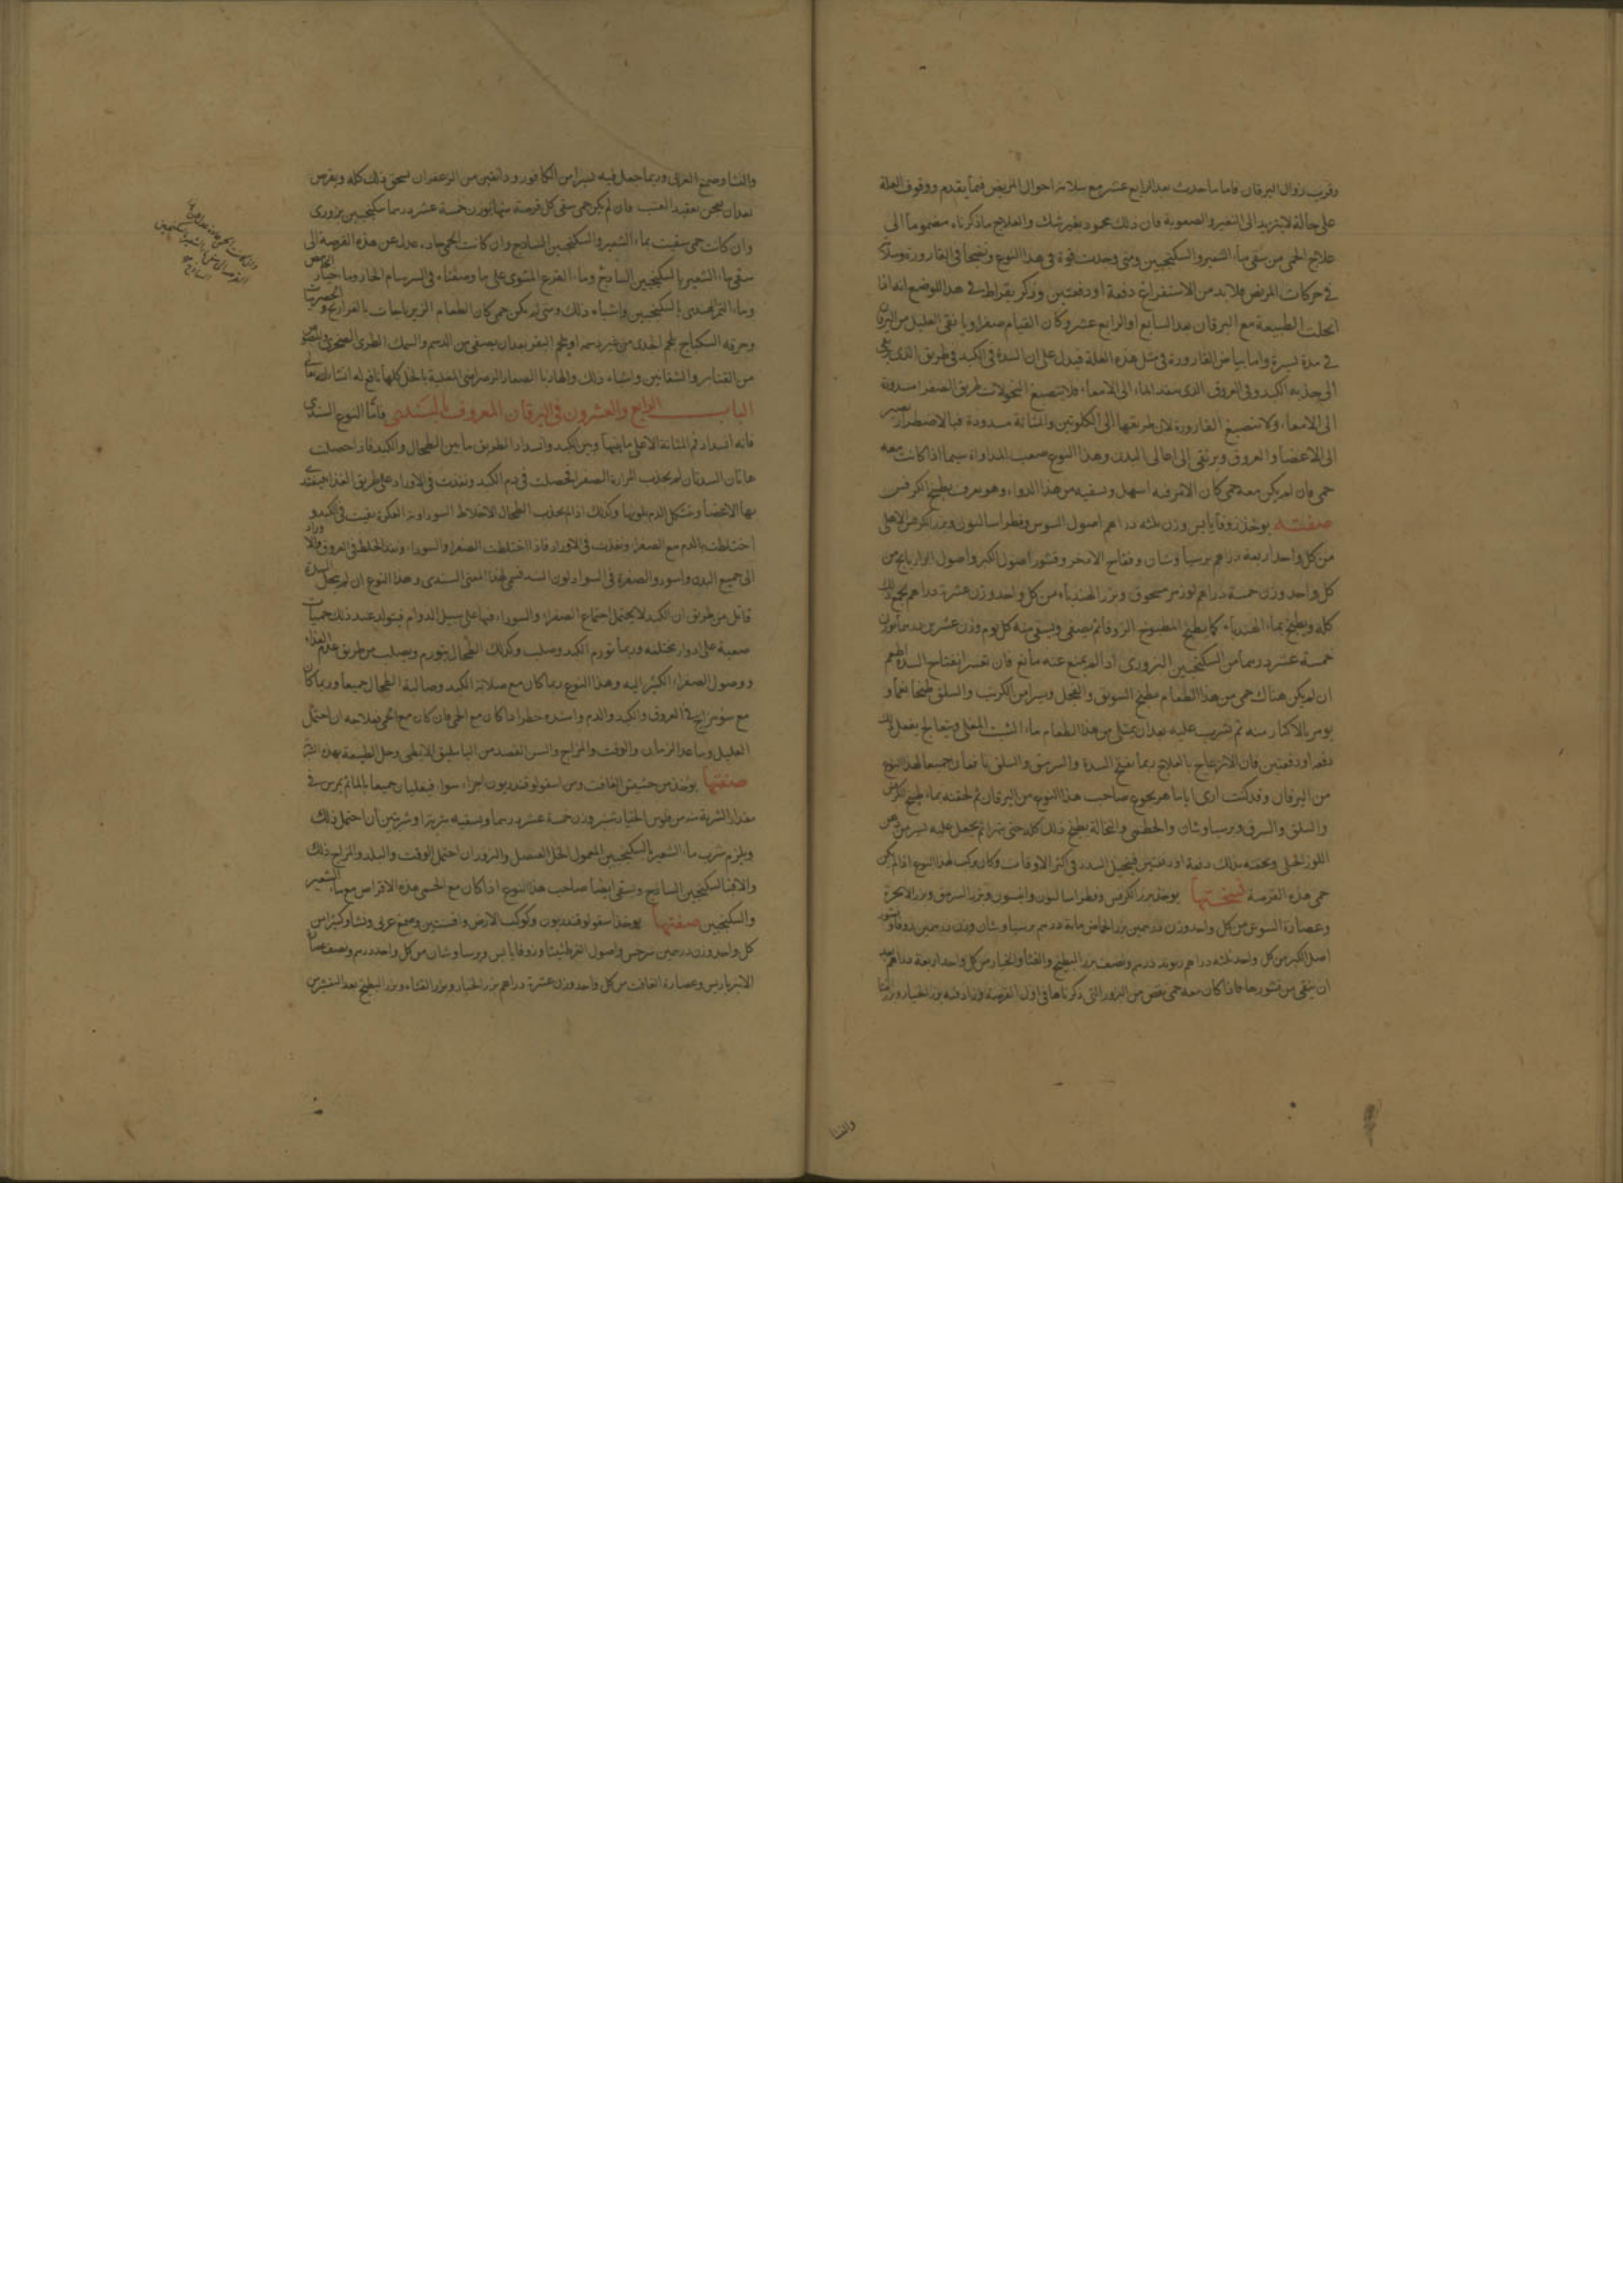 وقرب زوال اليرقان فاما ما حدث بعد الرابع عشر مع سلامة احوال المريض فيما يقدم ووقوف العلة
على حالة لا يتزيد الى التغير والصعوبة فان ذلك محمود بغير شك والعلاج ما ذكرناه مضموما الى
علاج الحمى من سقى ماء الشعير والسكنجبين ومتى وجدت قوة فى هذا النوع ونضجا فى القارورة
فى حركات المريض فلا بد من الاستفراغ دفعة او دفعتين وذكر بقراط فى هذا الموضع انه اذا
انحلت الطبيعة مع اليرقان بعد السابع او الرابع عشر وكان القيام صفراويا نقى العليل من اليرقان
فى مدة يسيرة واما بياض القارورة فى مثل هذه العلة فيدل على ان السدة فى الكبد فى طريق الذى
الى الكبد وفى العروق الذى الى الامعاء فلا تنصبغ لان طريق الصفرا مسدودة
الى الامعاء ولا تنصبغ القارورة لان طريقها الى الكلوتين والمثانة مسدودة فبالاضطرار
الى الاعضا والعروق ويرتقى الى اعالى البدن وهذا النوع صعب المداواة سيما اذا كانت معه
حمى فان لم يكن معه حمى كان الامر فيه اسهل وتسقيه من هذا الدواء وهو يعرف بطبيخ الكرفس
صفته يوخذ زوفا يابس وزن ثلثه دراهم اصول السوس وفطراساليون وبزر الكرفس
من كل واحد اربعة دراهم برسياوشان وفقاح الاذخر وقشور اصول الكبر واصول الرازيانج من
كل واحد وزن خمسة دراهم لوز مر مسحوق وبزر الهندباء من كل واحد وزن عشرة دراهم يجمع ذلك
كله ويطبخ بماء الهندباء كما يطبخ المطبوخ الزوفا ثم يصفى ويسقى منه كل يوم وزن عشرين درهما
خمسة عشر درهما من السكنجبين البزورى اذا لم يمنع عنه مانع فان تعسر انفتاح السدة اطعم
ان لم يكن هناك حمى من هذا الطعام مطبخ السويق والفجل ويسيرا من الكرنب والسلق طبخا
يومر بالاكثار منه ثم يشرب عليه بعد ان يمتلى من هذا الطعام ماء الشبت المغلى ويتعالج يفعل ذلك
دفعه او دفعتين فان الانزعاج بالعلاج ربما يفتح السدة والسرمق والسلق نافعان جميعا لهذا النوع
من اليرقان وقد كنت ارى ابا ماهر يجوع صاحب هذا النوع من اليرقان ثم يحقنه بماء طبيخ الكرفس
والسلق والسرق وبرسياوشان والخطمى والنخالة يطبخ ذلك كله حتى ثم يجعل عليه يسير من دهن
اللوز الحلو ويحقنه بذلك دفعة او دفعتين فيتحلل السدد فى اكثر الاوقات وكان يركب لهذا النوع اذا لم يكن
حمى هذه القرصة نسختها يوخذ بزر الكرفس وفطراساليون وانيسون وبزر السرمق وبزر الانجرة
وعصارة السوس من كل واحد وزن درهمين بزر الحماض مائة درهم برسياوشان وزن درهمين
اصل الكبر من كل واحد ثلثه دراهم ريوند درهم ونصف بزر البطيخ والقثا والخيار من كل واحد اربعة دراهم بعد
ان ينقى من قشورها فاذا كان معه حمى نقص من البزور التى ذكرناها فى اول القرصة وزاد فيه بزر الخيار وبزر القثا
والقثا
والنشا وصمغ العربى وربما جعل فيه يسيرا من الكافور ودانقين من الزعفران يسحق ذلك كله ويقرص
بعد ان يعجن بعقيد العنب فان لم يكن حمى سقى كل قرصة منها بوزن خمسة عشر درهما سكنجبين بزورى
وان كانت حمى سقيت بماء الشعير والسكنجبين الساذج وان كانت الحمى حادة عدل عن هذه القرصة الى
سقى ماء الشعير بالسكنجبين الساذج وماء القرع المشوى على ما وصفناه فى السرسام الحار وماء خيار
وماء التمر الهندى بالسكنجبين واشباه ذلك ومتى لم يكن حمى كان الطعام الزيرباجات بالفراريج و
ومرقه السكباج بلحم الجدى من غير دسمه او بلحم البقر بعد ان يصفى من الدسم والسمك الطرى الصخرى
من القنابر والشفانين واشباه ذلك والهازبا الصغار الرضراضى المغلية بالخل كلها نافع له انشاء الله تعالى
الباب الرابع والعشرون فى اليرقان المعروف بالسندى فاما النوع السندى
فانه انسداد فم المثانة الاعلى ما بينها وبين الكبد وانسداد الطريق ما بين الطحال والكبد فاذا حصلت
هاتان السدتان لم يجذب المرارة الصفرا فحصلت فى دم الكبد ونفذت فى الاوراد على طريق الغذا
بها الاعضا وتشكل الدم بلونها وكذلك اذا لم يجذب الطحال الاخلاط السوداوية العكرة بقيت فى الكبد و
اختلطت بالدم مع الصفرا ونفذت فى الاوراد فاذا اختلطت الصفرا والسوداء ونفذ الخلط فى العروق
الى جميع البدن واسود والصفرة فى السواد لون السند فسمى لهذا المعنى السندى وهذا النوع ان لم يحل السدة
قاتل من طريق ان الكبد لا يحتمل اجتماع الصفراء والسوداء فيها على سبيل الدوام فيتولد عند ذلك حميات
صعبة على ادوار مختلفه وربما تورم الكبد وصلب وكذلك الطحال يتورم ويصلب من طريق عدم الغذاء
ووصول الصفراء الكثير اليه وهذا النوع ربما كان مع صلابة الكبد وصلابة الطحال جميعا وربما كان
مع سوء مزاج فى العروق والكبد والدم واشده خطرا اذا كان مع الحمى فان كان مع الحمى فعلاجه ان احتمل
العليل وساعد الزمان والوقت والمزاج والسن الفصد من الباسليق الابطى وحل الطبيعة بهذه
صفتها يوخذ من حشيش الغافت ومن اسقولوقندريون اجزاء سواء فيغليان جميعا بالماء ثم يمرس فى
مقدار الشربة منه من فلوس الخيار شنبر وزن خمسة عشر درهما وتسقيه شربة او شربتين ان احتمل ذلك
ويلزم شرب ماء الشعير بالسكنجبين المعمول بالخل العنصل والبزور ان احتمل الوقت والبلد والمزاج ذلك
والا فبالسكنجبين الساذج وتسقى ايضا صاحب هذا النوع اذا كان مع الحمى هذه الاقراص مع ماء الشعير
والسكنجبين صفتها يوخذ اسقولوقندريون وكوكب الارض وافسنتين وصمغ عربى ونشا وكثيرا من
كل واحد وزن درهمين نرجس واصول القرطنيثا وزوفا يابس وبرسياوشان من كل واحد درهم ونصف
الانبرباريس وعصارة الغافت من كل واحد وزن عشرة دراهم بزر الخيار وبزر القثاء وبزر البطيخ بعد التقشير من